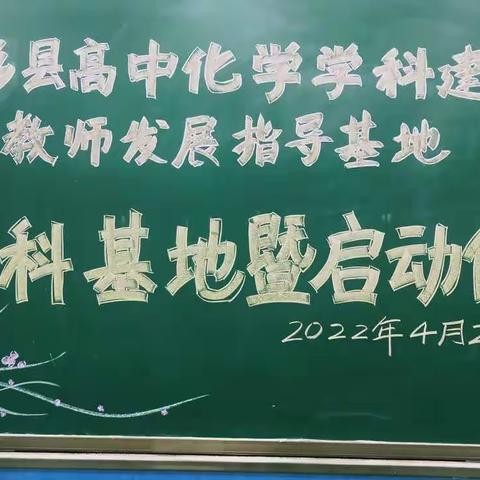 县高中化学学科建
教师发展指导基地
科基地暨启动
2022年4月2